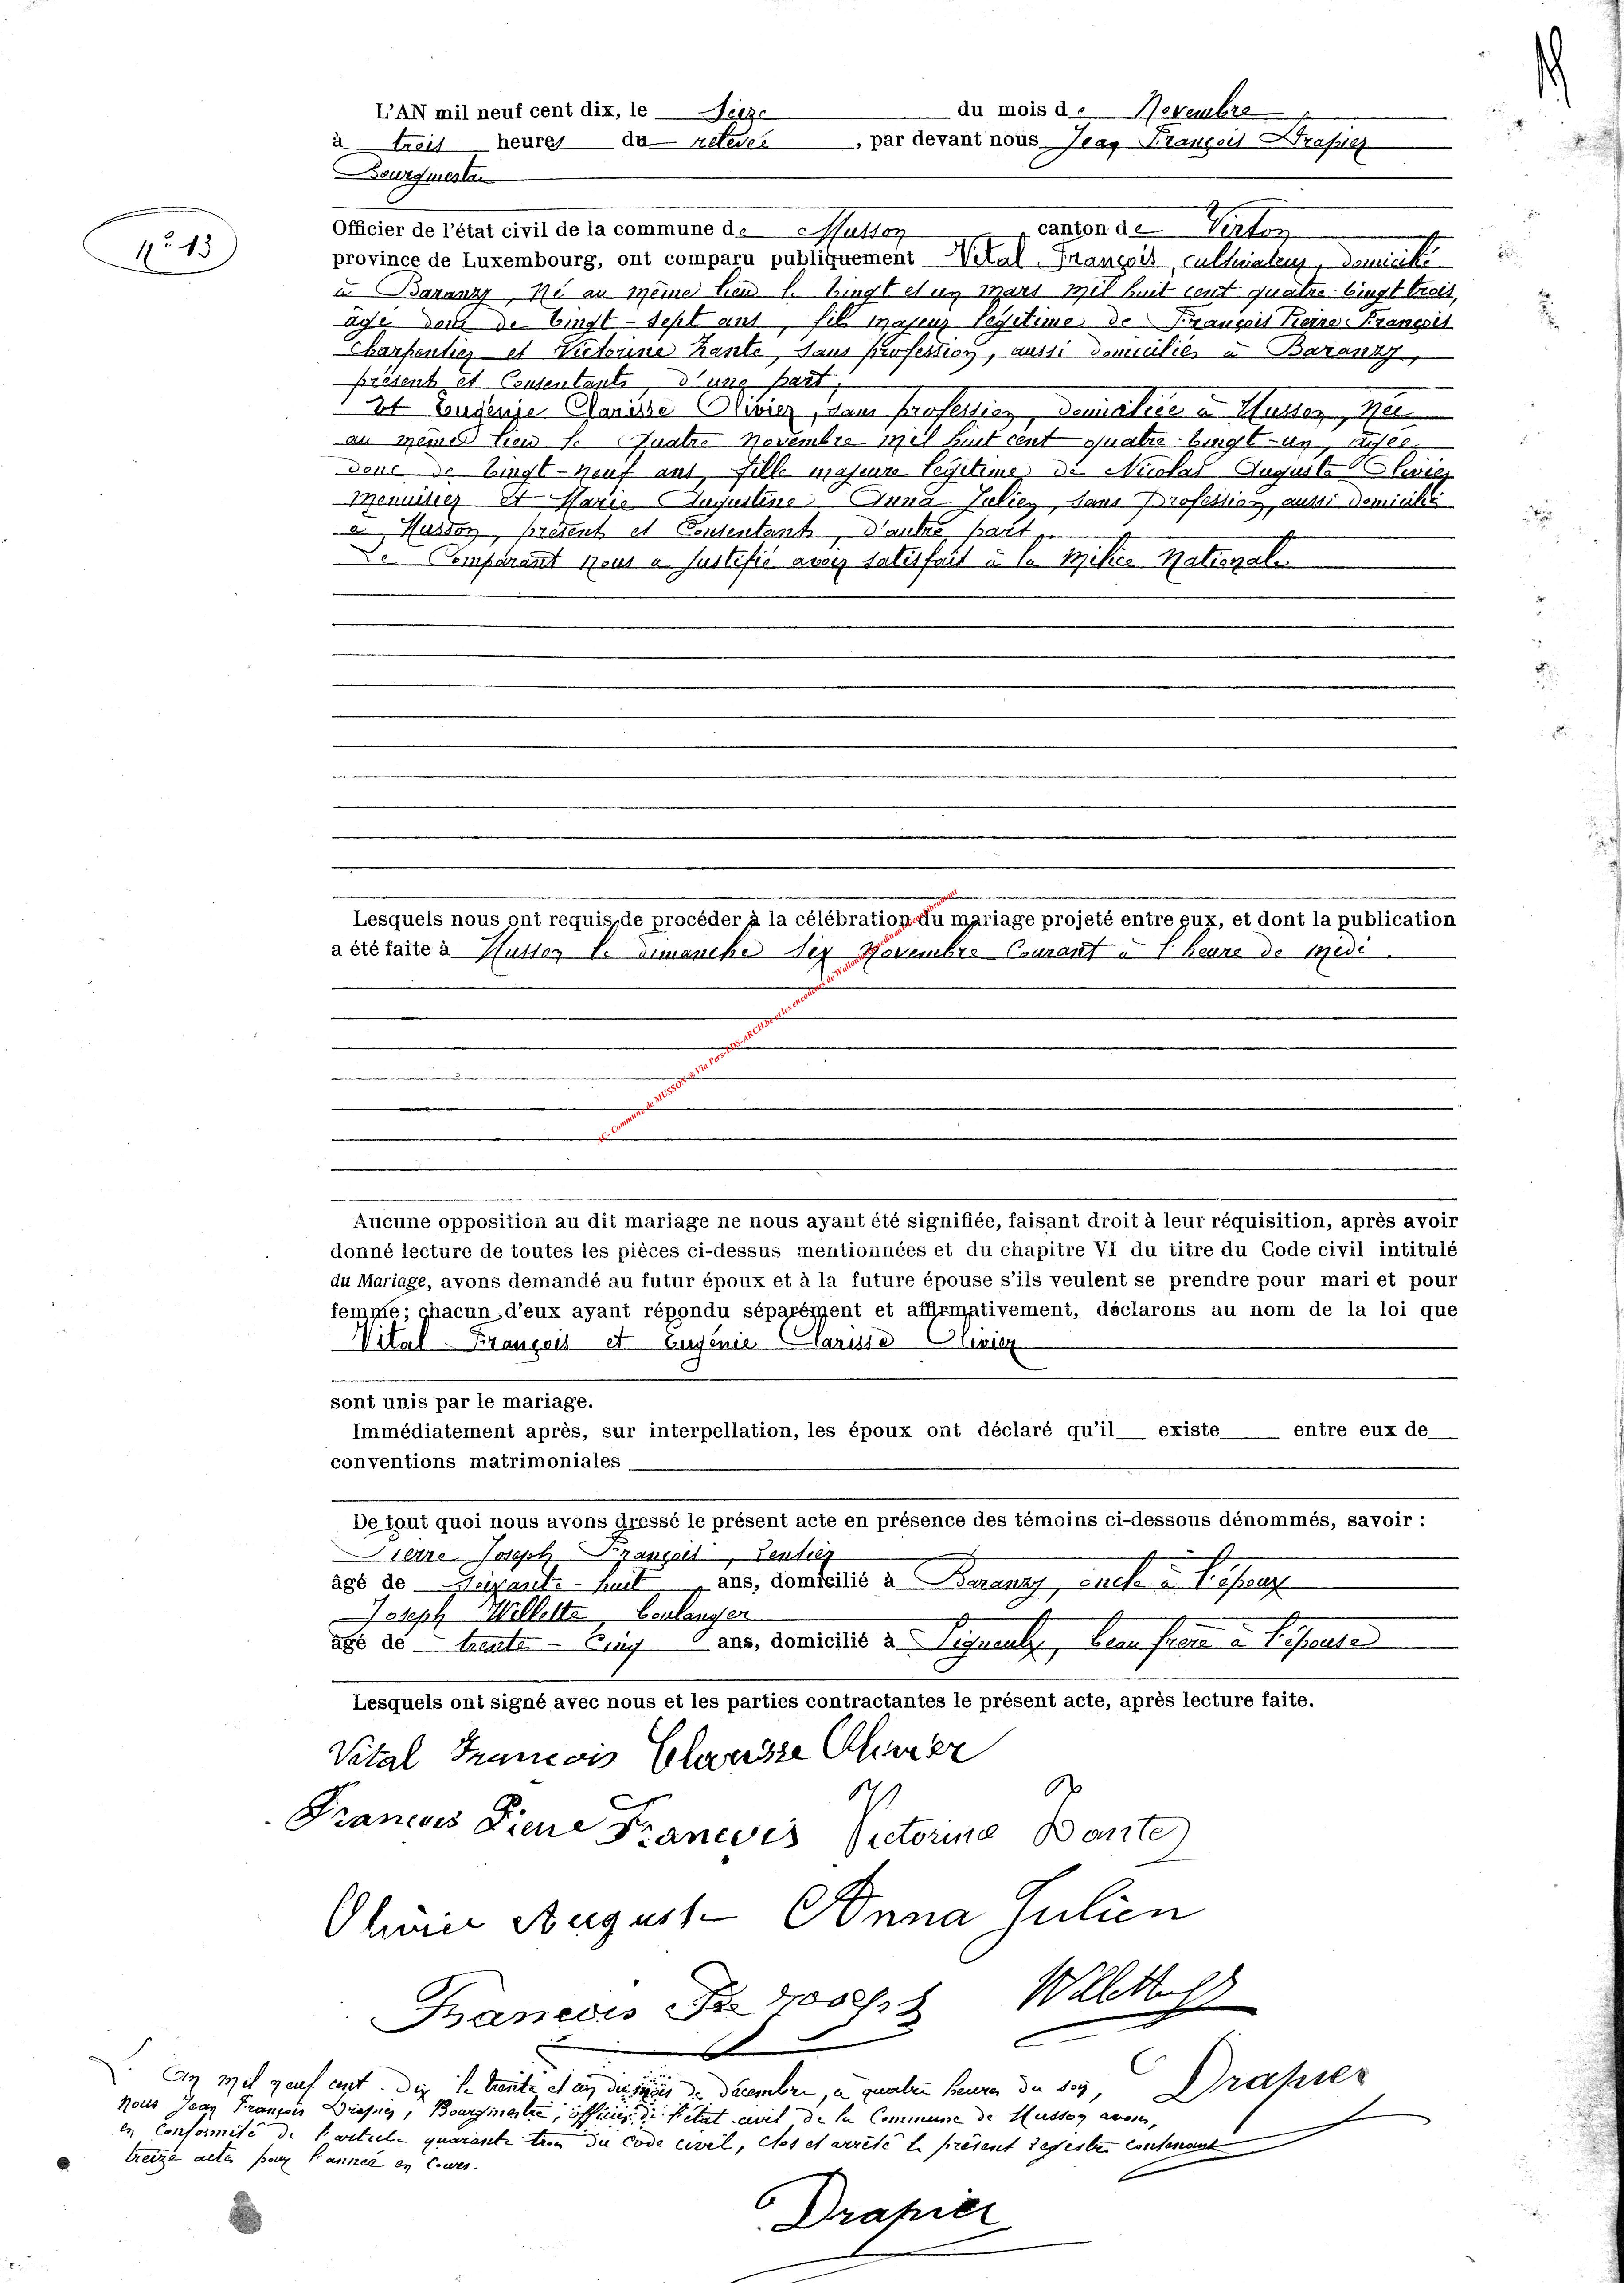 L'AN mil neuf cent dix, le Seize du mois de Novembre
à trois heures du relevée, par devant nous Jean François Drapier
Bourgmestre
Officier de l'état civil de la commune de Musson canton de Virton
N° 13
province de Luxembourg, ont comparu publiquement Vital François, cultivateur, domicilié
à Baranzy, Né au même lieu le vingt et un mars mil huit cent quatre-vingt trois,
âgé donc de vingt-sept ans, fils majeur légitime de François Pierre François
Charpentier et Victorine Zante, sans profession, aussi domiciliés à Baranzy,
présent et Consentants, d'une part,
Et Eugénie Clarisse Olivier, sans profession, domiciliée à Musson, Née
au même lieu le quatre Novembre mil huit cent quatre-vingt-un, âgée
donc de vingt-neuf ans, fille majeure légitime de Nicolas Auguste Olivier
Menuisier Et Marie Augustine Anna Julien, sans Profession, aussi domicilié
à Musson, présent et Consentant, d'autre part,
Le Comparant Nous a justifié avoir satisfait à la Milice Nationale
Lesquels nous ont requis de procéder à la célébration du mariage projeté entre eux, et dont la publication
a été faite à Musson le dimanche Six Novembre Courant à l'heure de Midi.
AC- Commune de MUSSON ® Via Pers-EDS-ARCH.be et les encodeurs de Wallonie
Aucune opposition au dit mariage ne nous ayant été signifiée, faisant droit à leur réquisition, après avoir
donné lecture de toutes les pièces ci-dessus mentionnées et du chapitre VI du titre du Code civil intitulé
du Mariage, avons demandé au futur époux et à la future épouse s'ils veulent se prendre pour mari et pour
femme; chacun d'eux ayant répondu séparément et affirmativement, déclarons au nom de la loi que
Vital François et Eugénie Clarisse Olivier
sont unis par le mariage.
Immédiatement après, sur interpellation, les époux ont déclaré qu'il existe entre eux de
conventions matrimoniales
De tout quoi nous avons dressé le présent acte en présence des témoins ci-dessous dénommés, savoir :
Pierre Joseph François, Rentier
âgé de Soixante-huit ans, domicilié à Baranzy, oncle à l'époux
Joseph Willette, boulanger
âgé de trente-Cinq ans, domicilié à Signeulx, beau frère à l'épouse
Lesquels ont signé avec nous et les parties contractantes le présent acte, après lecture faite.
Vital François Clarisse Olivier
François Pierre François Victorine Zante
Olivier August Anna Julien
François Pre Joseph Willette
Drapier
L'an mil neuf cent dix le trente et un du mois de décembre, à quatre heures du soir,
Nous Jean François Drapier, Bourgmestre, officier de l'état civil de la Commune de Musson avons,
en Conformité de l'article quarante trois du code civil, clos et arrêté le présent registre contenant
treize actes pour l'année en Cours.
Drapier